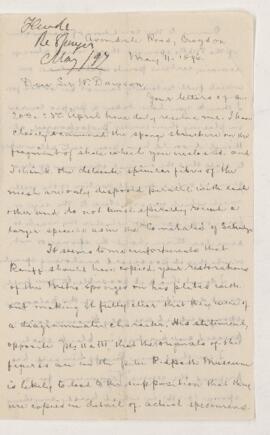 Hinde
Re Sponges
May /97
Avondale Road, Croydon,
May 11. 1896.
Dear Sir W. Dawson,
Your letters of the
20 & 23d April have duly reached me. I have
closely examined the sponge structure on the
fragment of slate which you enclosed and
I think the delicate spicular fibres of the
mesh are only disposed parallel with each
other and do not twist spirally round a
larger spicule as in the
It seems to me unfortunate that
Rauff should have copied your restorations
of the Metis sponges on his plates with
out making it fully clear that they were of
a diagrammatic character. His statement,
opposite that the originals of the
figures are in the Peter Redpath Museum
is likely to lead to the supposition that they
are copies in detail of actual specimens.